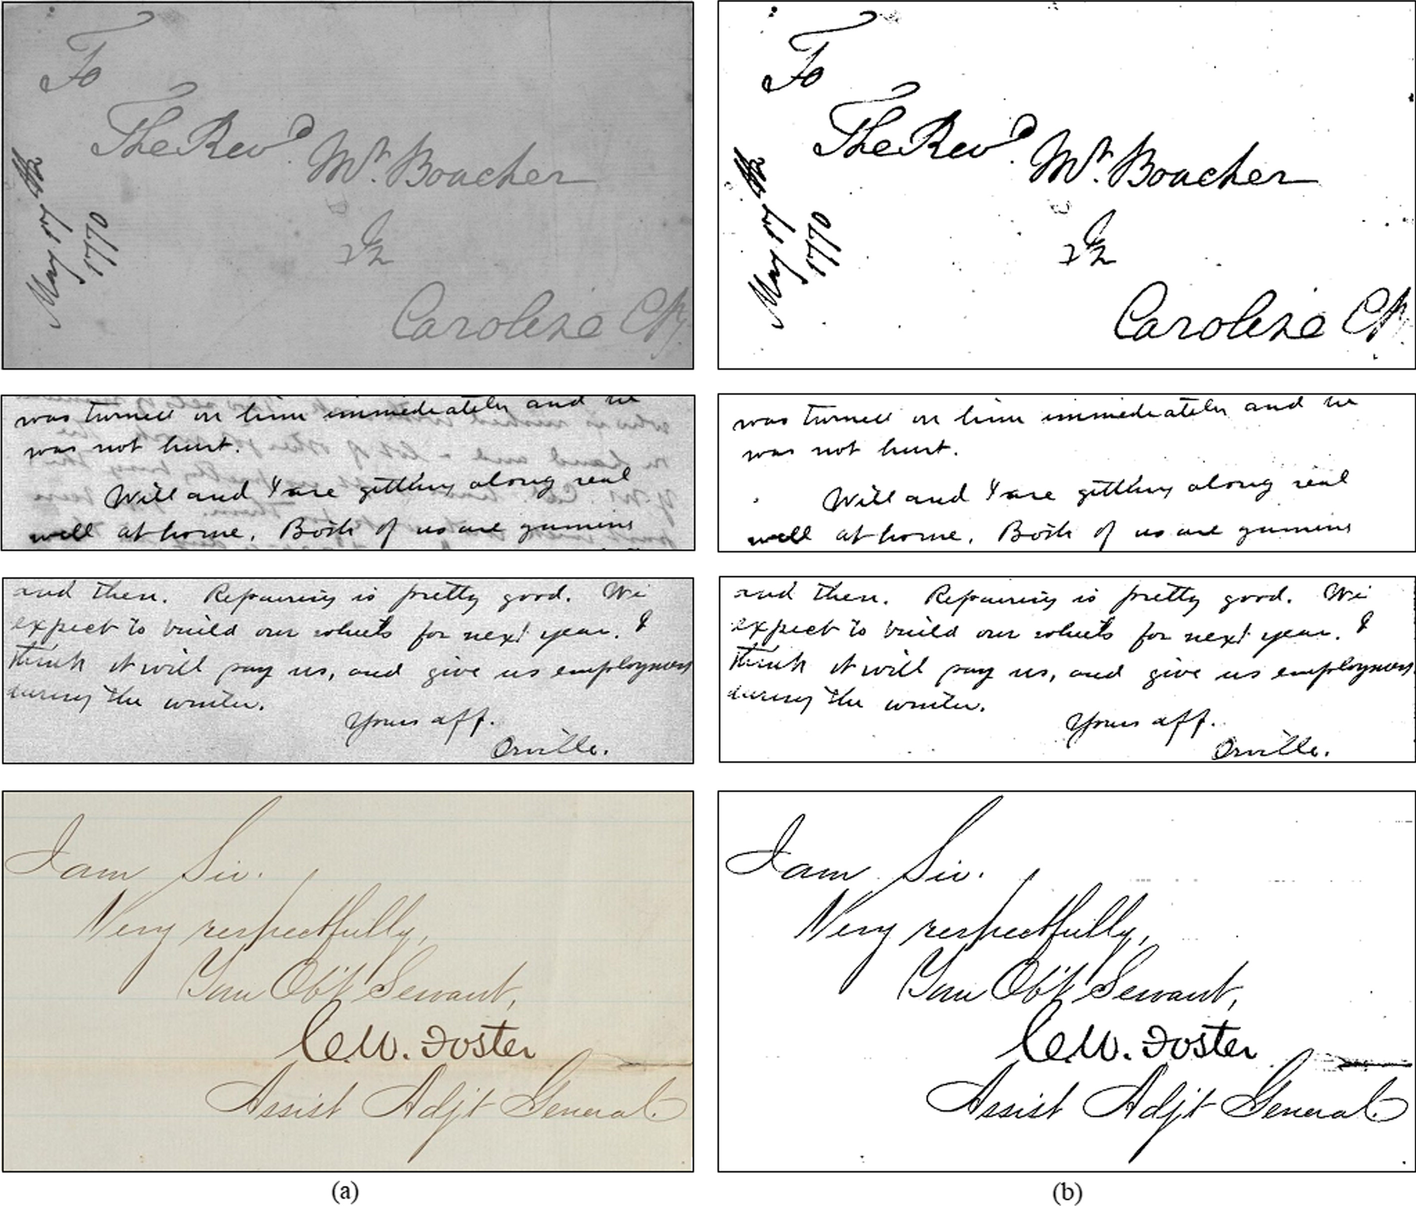 To
The Revd. Mr. Boucher
In
Caroline Cty
1770
To
The Revd. Mr. Boucher
In
Caroline Cty
1770
was turned on him immediately and he
was not hurt.
Will and I are getting along real
well at home. Both of us are
was turned on him immediately and he
was not hurt.
Will and I are getting along real
well at home. Both of us are
and then. Repairing is pretty good. We
expect to build our wheels for next year. I
think it will pay us, and give us employment
during the winter.
Yours aff.
Orville.
and then. Repairing is pretty good. We
expect to build our wheels for next year. I
think it will pay us, and give us employment
during the winter.
Yours aff.
Orville.
I am Sir.
Very respectfully,
Your Obt Servant,
C.W. Foster
Assist Adjt General.
I am Sir.
Very respectfully,
Your Obt Servant,
C.W. Foster
Assist Adjt General.
(a)
(b)